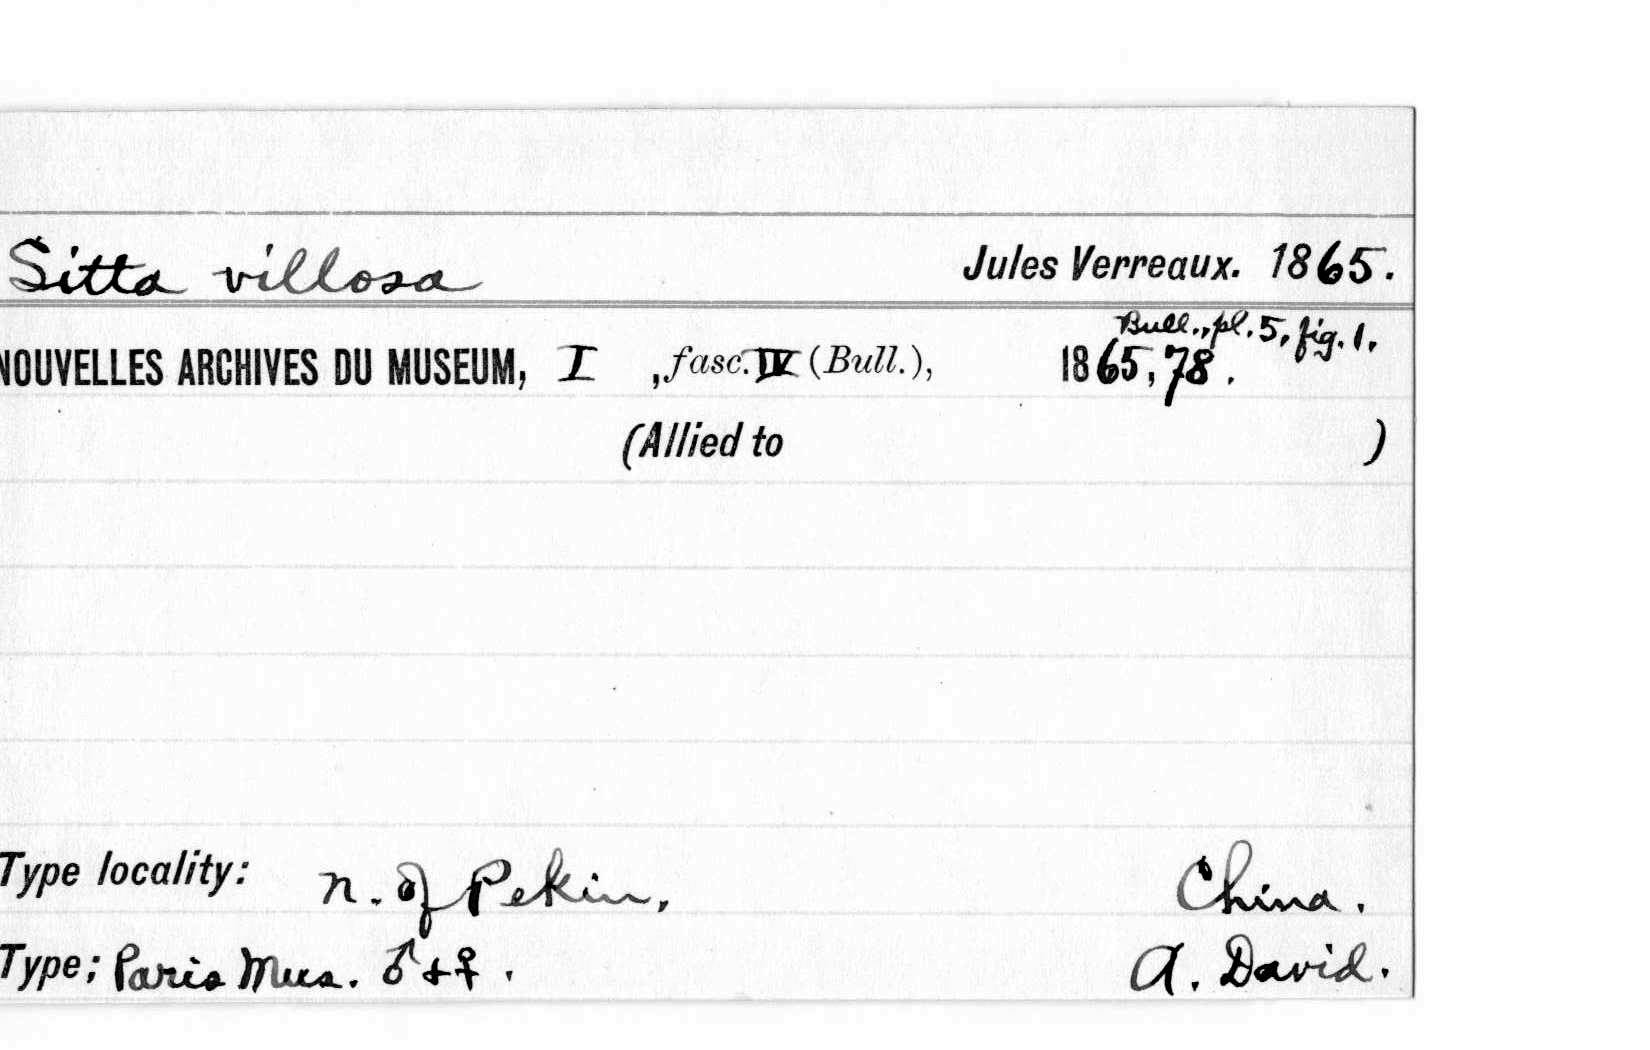 Sitta villosa Jules Verreaux. 1865.
Bull., pl. 5, fig. 1.
NOUVELLES ARCHIVES DU MUSEUM, I , fasc. IV (Bull.), 1865, 78.
(Allied to )
Type locality: n. of Pekin, China.
Type; Paris Mus. ♂ + ♀. A. David.